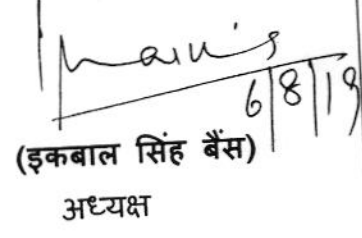 6/8/19
(इकबाल सिंह बैंस)
अध्यक्ष